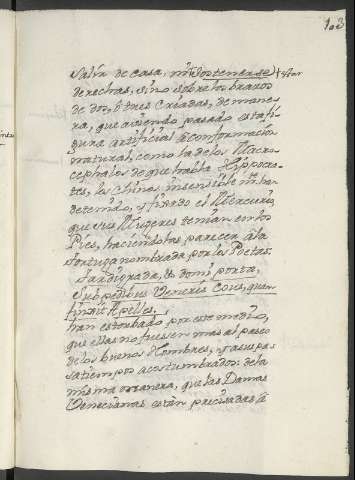 103
Salir de casa, ni sostenerse
derechas, sino sobre los brazos
de dos, ò tres Criadas, de mane-
ra, que aviendo pasado esta fi-
gura artificial à conformacion
natural, como la de los Macro-
cephalos de que habla Hippocra-
tes, los Chinos insensiblem.te han
detenido, y fixado el Mercurio,
que sus Mugeres tenian en los
Pies, haciendolas parecer à la
tortuga nombrada por los Poetas.
Tardigrada, & domi porta,
Sub pedibus Veneris Cous, quam
finxit Apelles,
han estorbado por este medio,
que ellas no fuesen mas al paseo
de los buenos Hombres, y a sus pas-
satiempos acostumbrados: de la
misma manera, que las Damas
Venecianas estàn precisadas à